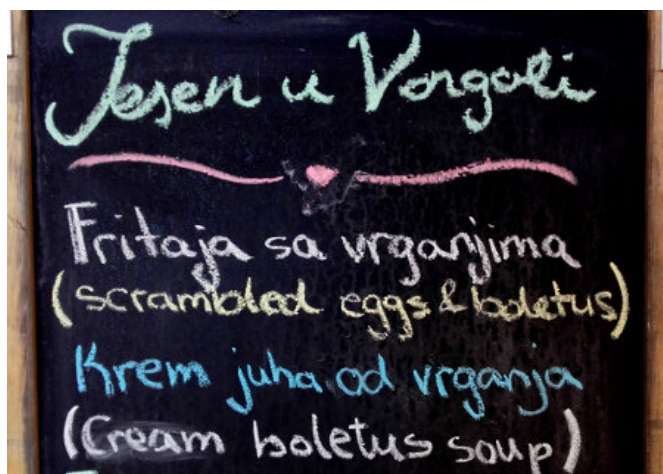 Jesen u Vorgoli
Fritaja sa vrganjima
(scrambled eggs & boletus)
Krem juha od vrganja
(Cream boletus soup)